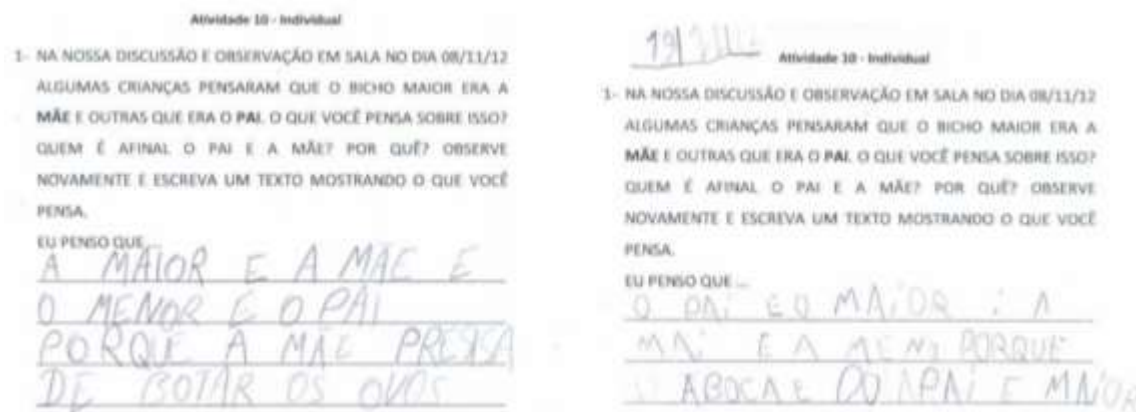 Atividade 10 - Individual
1- NA NOSSA DISCUSSÃO E OBSERVAÇÃO EM SALA NO DIA 08/11/12
ALGUMAS CRIANÇAS PENSARAM QUE O BICHO MAIOR ERA A
MÃE E OUTRAS QUE ERA O PAI. O QUE VOCÊ PENSA SOBRE ISSO?
QUEM É AFINAL O PAI E A MÃE? POR QUÊ? OBSERVE
NOVAMENTE E ESCREVA UM TEXTO MOSTRANDO O QUE VOCÊ
PENSA.
EU PENSO QUE...
A MAIOR E A MAE E
O MENOR E O PAI
PORQUE A MAE PRESISA
DE BOTAR OS OVOS
Atividade 10 - Individual
1- NA NOSSA DISCUSSÃO E OBSERVAÇÃO EM SALA NO DIA 08/11/12
ALGUMAS CRIANÇAS PENSARAM QUE O BICHO MAIOR ERA A
MÃE E OUTRAS QUE ERA O PAI. O QUE VOCÊ PENSA SOBRE ISSO?
QUEM É AFINAL O PAI E A MÃE? POR QUÊ? OBSERVE
NOVAMENTE E ESCREVA UM TEXTO MOSTRANDO O QUE VOCÊ
PENSA.
EU PENSO QUE ...
O PAI E O MAIOR I A
MAI E A MENI PORQUE
ABOCA E DO APAI E MAIOR